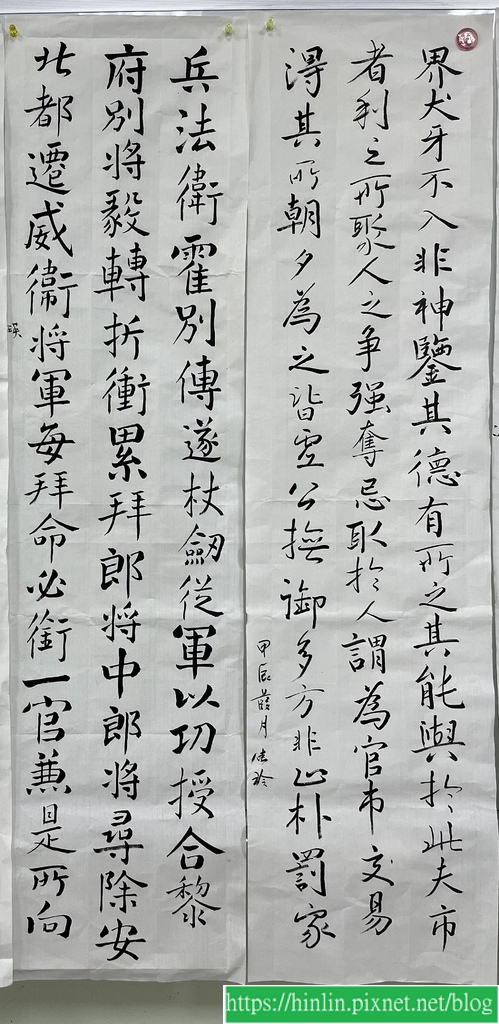 界犬牙不入非神鑒其德有所之其能與於此夫市
者利之所聚人之爭强奪忌取於人謂為官市交易
得其所朝夕為之皆空公撫御多方非止朴罰家
甲辰葭月佳玲
兵法衛霍別傳遂杖劒從軍以功授合黎
府別將毅轉折衝累拜郎將中郎將尋除安
北都遷威衞將軍每拜命必銜一官兼是所向
https://hinlin.pixnet.net/blog